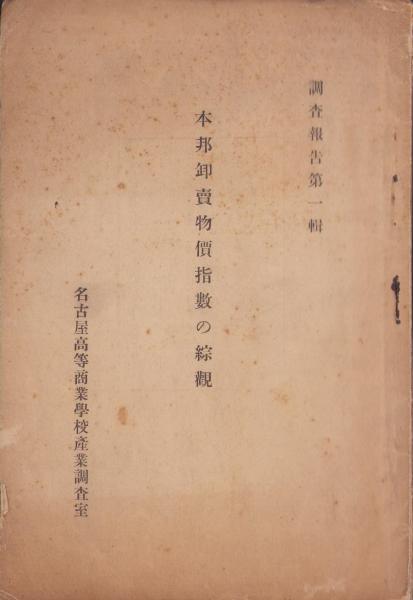 調査報告第一輯
本邦卸賣物價指數の綜觀
名古屋高等商業學校産業調査室